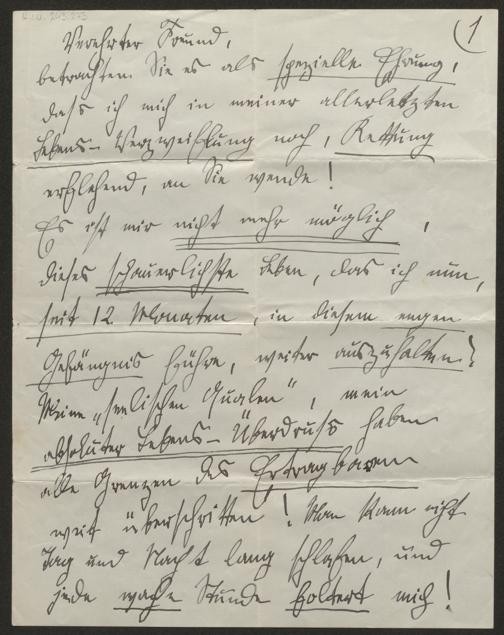 H.I.N. 203.273
(1
Verehrter Freund,
betrachten Sie es als spezielle Ehrung,
dass ich mich in meiner allerletzten
Lebens-Verzweiflung noch, Rettung
erflehend, an Sie wende!
Es ist mir nicht mehr möglich,
dieses schauerlichste Leben, das ich nun,
seit 12 Monaten, in diesem engen
Gefängnis führe, weiter auszuhalten!
Meine „seelischen Qualen“, mein
absoluter Lebens-Überdruss haben
alle Grenzen des Ertragbaren
weit überschritten! Man kann nicht
Tag und Nacht lang schlafen, und
jede wache Stunde foltert mich!